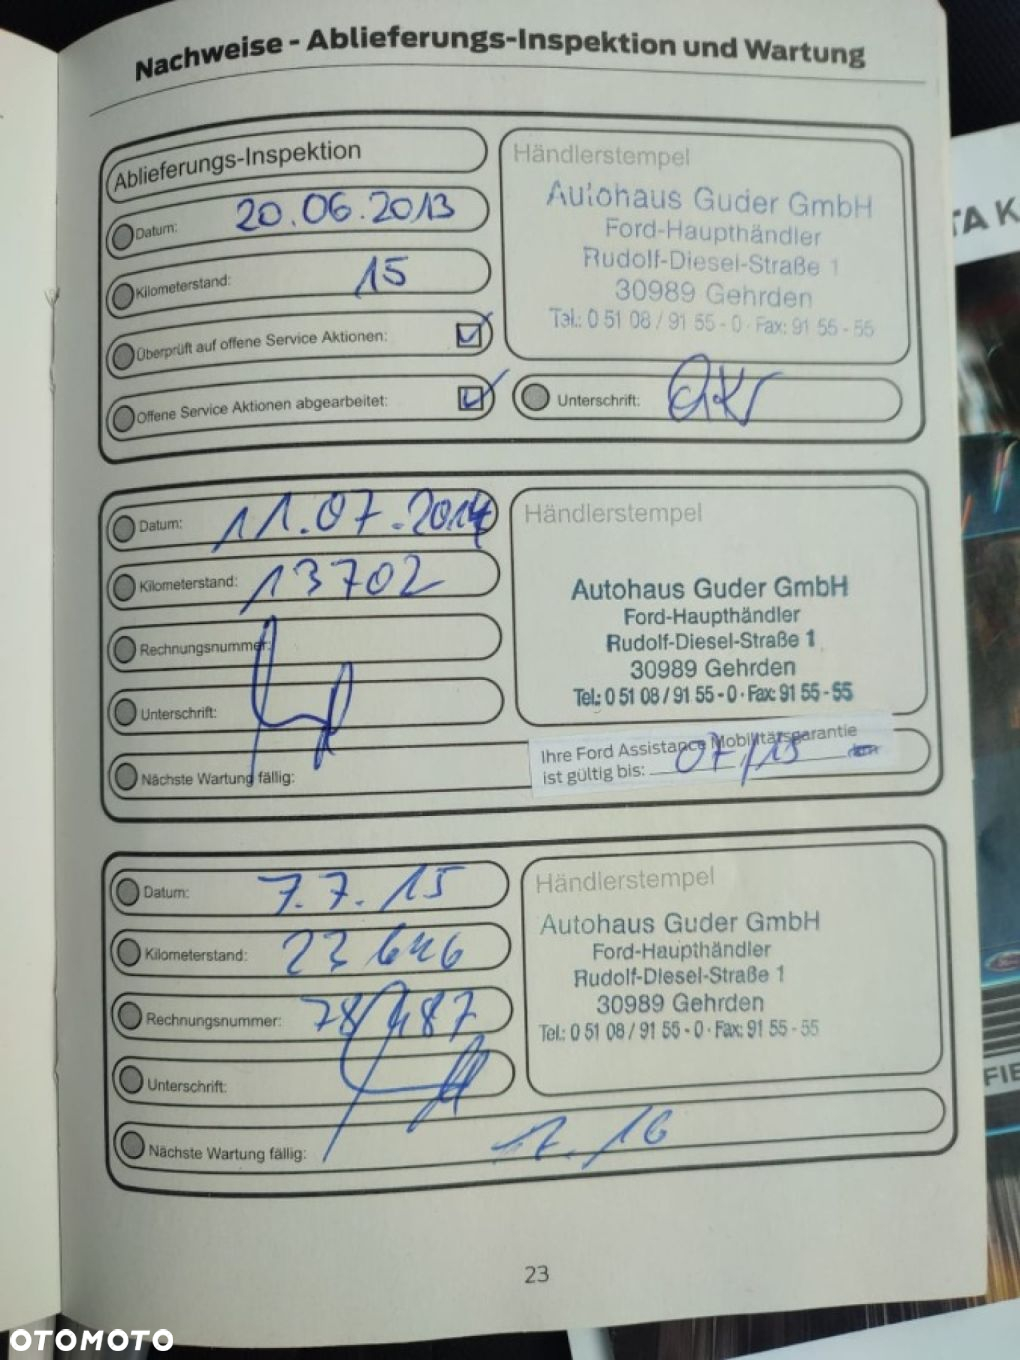 Nachweise - Ablieferungs-Inspektion und Wartung
Ablieferungs-Inspektion
Datum: 20.06.2013
Kilometerstand: 15
Überprüft auf offene Service Aktionen:
Offene Service Aktionen abgearbeitet:
Händlerstempel
Autohaus Guder GmbH
Ford-Haupthändler
Rudolf-Diesel-Straße 1
30989 Gehrden
Tel.: 0 51 08 / 91 55 - 0 · Fax: 91 55 - 55
Unterschrift:
Datum: 11.07.2014
Kilometerstand: 13702
Rechnungsnummer:
Unterschrift:
Nächste Wartung fällig:
Händlerstempel
Autohaus Guder GmbH
Ford-Haupthändler
Rudolf-Diesel-Straße 1
30989 Gehrden
Tel.: 0 51 08 / 91 55 - 0 · Fax: 91 55 - 55
Ihre Ford Assistance Mobilitätsgarantie
ist gültig bis: 07/15
Datum: 7.7.15
Kilometerstand: 23646
Rechnungsnummer:
Unterschrift:
Nächste Wartung fällig: 7.16
Händlerstempel
Autohaus Guder GmbH
Ford-Haupthändler
Rudolf-Diesel-Straße 1
30989 Gehrden
Tel.: 0 51 08 / 91 55 - 0 · Fax: 91 55 - 55
23
TA K
FIE
OTOMOTO